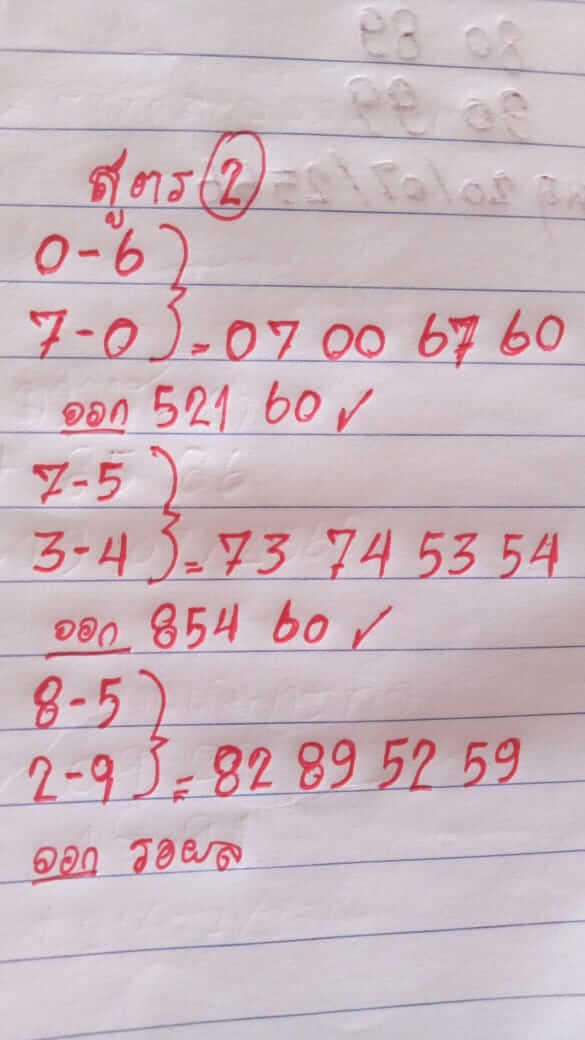 สูตร 2
0-6
7-0 = 07 00 67 60
ออก 521 60 ✓
7-5
3-4 = 73 74 53 54
ออก 854 60 ✓
8-5
2-9 = 82 89 52 59
ออก รอผล